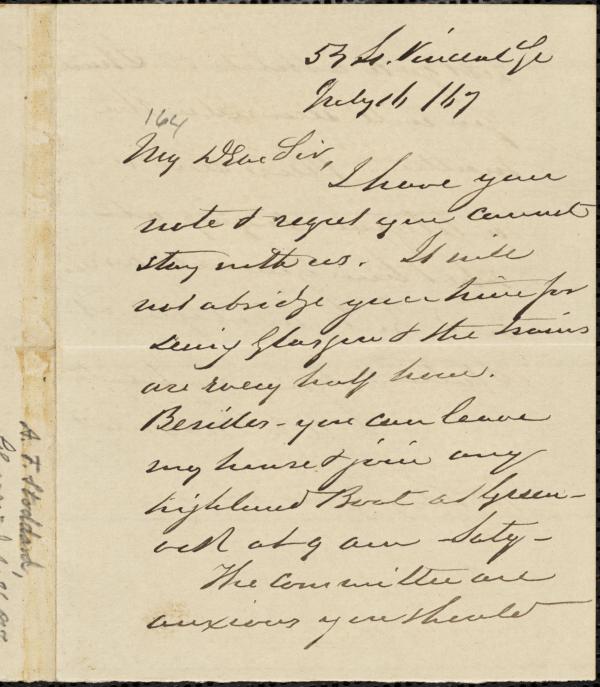 53 St. Vincent St
July 16 /67
164
My Dear Sir,
I have your
note & regret you cannot
stay with us. It will
not abridge your time for
seeing Glasgow & the trains
are every half hour.
Besides - you can leave
my house & join any
highland Boat at Green-
ock at 9 am - Saty -
The Committee are
anxious you should
A. F. Stoddard,